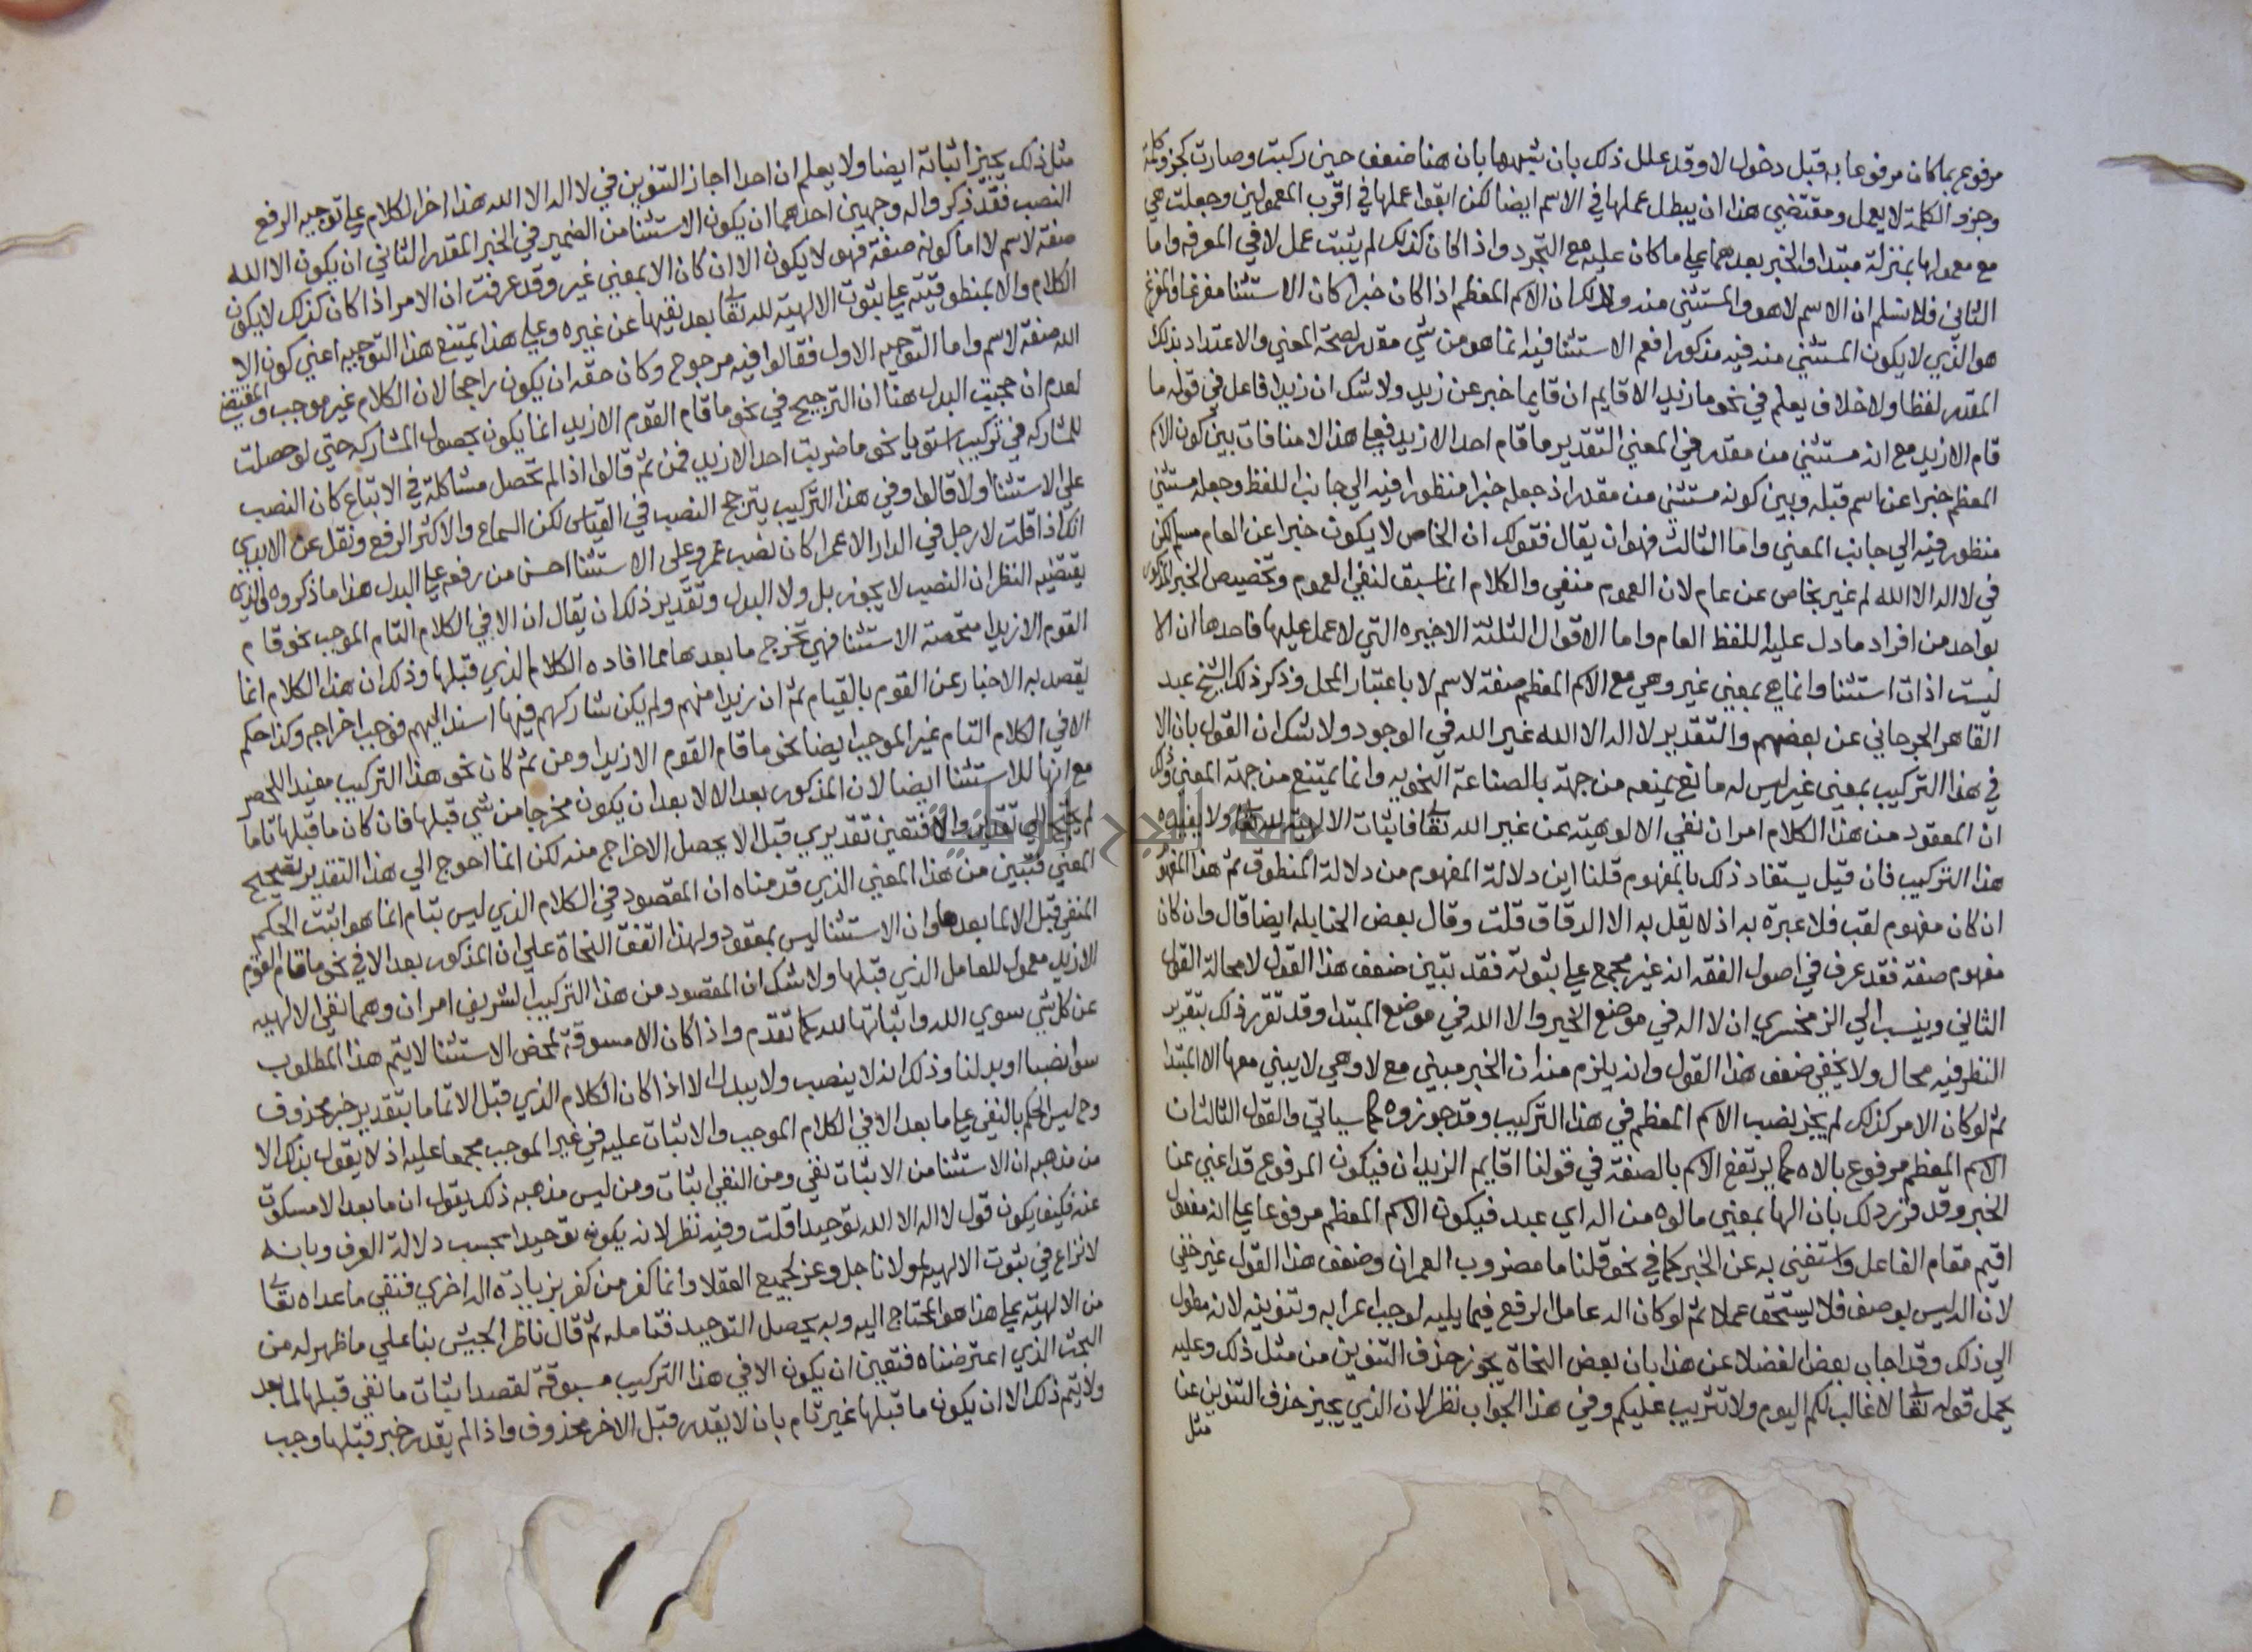 مرفوع بما كان مرفوعا به قبل دخول لا وقد علل ذلك بان شبهها بان هنا ضعف حين ركبت وصارت كجزو كلمة
وجزو الكلمة لا يعمل ومقتضي هذا ان يبطل عملها في الاسم ايضا لكن ابقوا عملها في اقرب المعمولين وجعلت هي
مع معمولها بمنزلة مبتدا والخبر بعدهما علي ما كان عليه مع التجرد واذا كان كذلك لم يثبت عمل لا في المعرفه واما
الثاني فلا نسلم ان الاسم لا هو والمستثني منه وذلك ان الاسم المعظم اذا كان خبرا كان الاستثنا مفرغا والمفرغ
هو الذي لا يكون المستثني منه فيه مذكورا فعم الاستثنا فيه انما هو من شي مقدر لصحة المعني والاعتداد بذلك
المقدر لفظا ولا خلاف يعلم في نحو ما زيد الا قايم ان قايما خبر عن زيد ولا شك ان زيدا فاعل في قوله ما
قام الا زيد مع انه مستثني من مقدر في المعني التقدير ما قام احد الا زيد فعلي هذا لا منافات بين كون الاسم
المعظم خبرا عن اسم قبله وبين كونه مستثني من مقدر اذ جعله خبرا منظورا فيه الي جانب اللفظ وجعله مستثني
منظور فيه الي جانب المعني واما الثالث فهو ان يقال فقولك ان الخاص لا يكون خبرا عن العام مسلم لكن
في لا اله الا الله لم يخبر بخاص عن عام لان العموم منفي والكلام انما سيق لنفي العموم وتخصيص الخبر المذكور
بواحد من افراد ما دل عليه اللفظ العام واما الاقوال الثلثة الاخيره التي لا عمل عليها فاحدها ان الا
ليست اداة استثنا وانما هي بمعني غير وهي مع الاسم المعظم صفة لاسم لا باعتبار المحل وذكر ذلك الشيخ عبد
القاهر الجرجاني عن بعضهم والتقدير لا اله الا الله غير الله في الوجود ولا شك ان القول بان الا
في هذا التركيب بمعني غير ليس له مانع يمنعه من جهة بالصناعة النحويه وانما يمتنع من جهة المعني وذلك
ان المقصود من هذا الكلام امران نفي الالوهية عن غير الله تعا فاثبات الالهية لله تعا ولا يفيده
هذا التركيب فان قيل يستفاد ذلك بالمفهوم قلنا اين دلالة المفهوم من دلالة المنطوق ثم هذا المفهوم
ان كان مفهوم لقب فلا عبرة به اذ لا يقل به الا الدقاق قلت وقال بعض الحنابله ايضا قال وان كان
مفهوم صفة فقد عرف في اصول الفقه انه غير مجمع علي ثبوته فقد تبين ضعف هذا القول لا محالة القول
الثاني وينسب الي الزمخشري ان لا اله في موضع الخبر والا الله في موضع المبتدا وقد تقرر ذلك بتقرير
النظر فيه مجال ولا يخفي ضعف هذا القول وانه يلزم منه ان الخبر مبني مع لا وهي لا يبني معها الا المبتدا
ثم لو كان الامر كذلك لم يجز نصب الاسم المعظم في هذا التركيب وقد جوزوه كما سياتي والقول الثالث ان
الاسم المعظم مرفوع بالاه كما يرتفع الاسم بالصفة في قولنا اقايم الزيدان فيكون المرفوع قد اغني عنا
الخبر وقد قرر ذلك بان الها بمعني مالوه من اله اي عبد فيكون الاسم المعظم مرفوعا علي انه مفعول
اقيم مقام الفاعل واستغني به عن الخبر كما في نحو قلنا ما مضروب العمران وضعف هذا القول غير خفي
لان اله ليس بوصف فلا يستحق عملا ثم لو كان اله عامل الرفع فيما يليه لوجب اعرابه وتنوينه لانه مطول
الي ذلك وقد اجاب بعض الفضلا عن هذا بان بعض النحاة يجوز حذف التنوين من مثل ذلك وعليه
يحمل قوله تعا لا غالب لكم اليوم ولا تثريب عليكم وفي هذا الجواب نظر لان الذي يجيز حذف التنوين عنا
مثل
مثل ذلك يجيز اثباته ايضا ولا يعلم ان احدا اجاز التنوين في لا اله الا الله هذا اخر الكلام علي توجيه الرفع
النصب فقد ذكروا له وجهين احدهما ان يكون الاستثنا من الضمير في الخبر المقدر الثاني ان يكون الا الله
صفة لاسم لا اما كونه صفة فهو لا يكون الا ان كان الا بمعني غير وقد عرفت ان الامر اذا كان كذلك لا يكون
الكلام والا بمنطوقيته علي ثبوت الالهية لله تعا بعد نفيها عن غيره وعلي هذا يمتنع هذا التوجيه اعني كون الا
الله صفة لاسم واما التوجيه الاول فقالوا فيه مرجوح وكان حقه ان يكون راجحا لان الكلام غير موجب والمقتضي
لعدم ان مجيت البدل هنا ان الترجيح في نحو ما قام القوم الا زيد انما يكون بحصول المشاركه حتي لو حصلت
للمشاركه في تركيب استويا نحو ما ضربت احد الا زيد فمن ثم قالوا اذا لم تحصل مشاكلة في الاتباع كان النصب
علي الاستثنا اولا قالوا وفي هذا التركيب يترجح النصب في القياس لكن السماع والاكثر الرفع ونقل عن الابدي
انك اذا قلت لا رجل في الدار الا عمرا كان نصب عمرو علي الاستثنا احسن من رفعه علي البدل هذا ما ذكروه والذي
يقتضيه النظر ان النصب لا يجوز بل ولا البدل وتقدير ذلك ان يقال ان الا في الكلام التام الموجب نحو قام
القوم الا زيدا متمحضة الاستثنا فهي تخرج ما بعدها مما افاده الكلام الذي قبلها وذلك ان هذا الكلام انما
يقصد به الاخبار عن القوم بالقيام ثم ان زيدا منهم ولم يكن شاركهم فيها اسند اليهم فوجب اخراجه وكذا حكم
الا في الكلام التام غير الموجب ايضا نحو ما قام القوم الا زيدا ومن ثم كان نحو هذا التركيب مفيدا للحصر
مع انها للاستثنا ايضا لان المذكور بعد الا لا بد ان يكون مخرجا من شي قبلها فان كان ما قبلها تاما
لم يحتج الي تقدير والا فتعين تقدير شي قبل الا يحصل الاخراج منه لكن انما احوج الي هذا التقدير تصحيح
المعني فتبين من هذا المعني الذي قدمناه ان المقصود في الكلام الذي ليس بتام انما هو اثبت الحكم
المنفي قبل الا لما بعدها وان الاستثنا ليس بمقصود ولهذا اتفق النحاة علي ان المذكور بعد الا في نحو ما قام القوم
الا زيد معمول للعامل الذي قبلها ولا شك ان المقصود من هذا التركيب الشريف امران وهما نفي الالهيه
عن كل شي سوي الله واثباتها لله كما تقدم واذا كان الا مسوقة لمحض الاستثنا لا يتم هذا المطلوب
سوا نصبنا او بدلنا وذلك انه لا ينصب ولا يبدل الا اذا كان الكلام الذي قبل الا تاما بتقدير خبر محذوف
وح ليس الحكم بالنفي علي ما بعد الا في الكلام الموجب والاثبات عليه في غير الموجب مجمعا عليه اذ لا يقول بذلك الا
من مذهبه ان الاستثنا من الاثبات نفي ومن النفي اثبات ومن ليس مذهبه ذلك يقول ان ما بعد الا مسكوت
عنه فكيف يكون قول لا اله الا الله توحيدا قلت وفيه نظر لانه يكون توحيدا بحسب دلالة العرف وبانه
لا نزاع في ثبوت الالهيه لمولانا جل وعز لجميع العقلا وانما كفر من كفر بزيادة اله اخري فنفي ما عداه تعا
من الالهية علي هذا هو المحتاج اليه وبه يحصل التوحيد فتامله ثم قال ناظر الجيش بنا علي ما ظهر له من
البحث الذي اعترضناه فتعين ان يكون الا في هذا التركيب مسوقة لقصد اثبات ما نفي قبلها لما بعد
ولا يتم ذلك الا ان يكون ما قبلها غير تام بان لا يقدر قبل الا خبر محذوف واذا لم يقدر خبر قبلها وجب